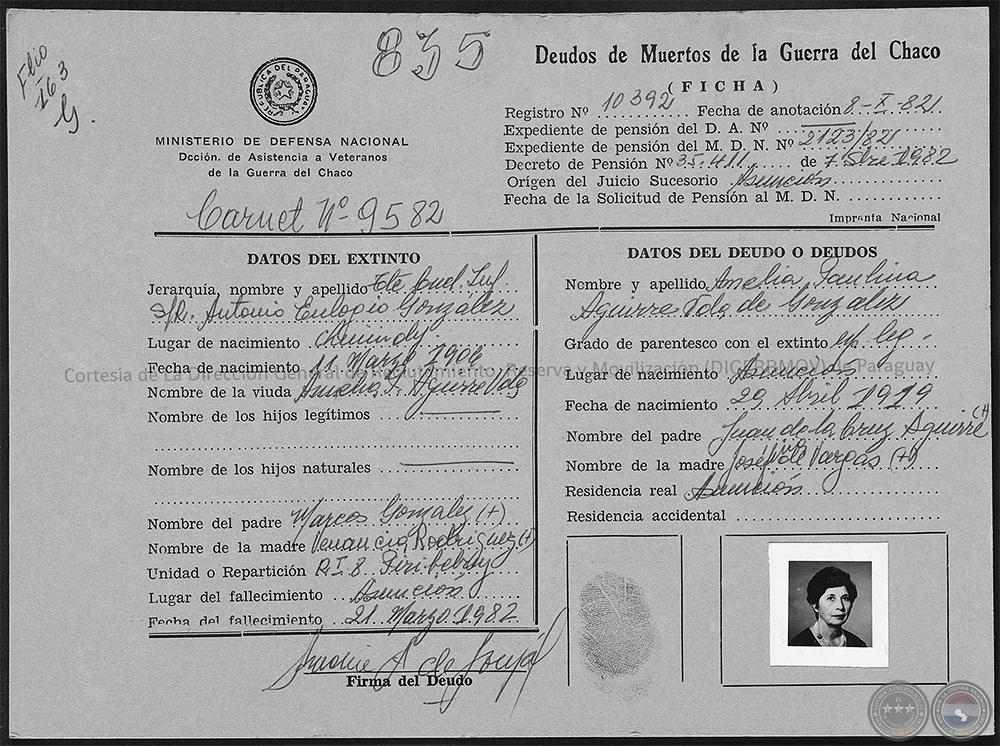 Flio
163
G.
835
REPUBLICA DEL PARAGUAY
MINISTERIO DE DEFENSA NACIONAL
Dcción. de Asistencia a Veteranos
de la Guerra del Chaco
Carnet Nº 9582
Deudos de Muertos de la Guerra del Chaco
(FICHA)
Registro Nº 10392 Fecha de anotación 8-X-82
Expediente de pensión del D. A. Nº
Expediente de pensión del M. D. N. Nº 2123/82
Decreto de Pensión Nº 35.411 de 7 Stre 1982
Orígen del Juicio Sucesorio Asunción
Fecha de la Solicitud de Pensión al M. D. N.
Imprenta Nacional
DATOS DEL EXTINTO
Jerarquía, nombre y apellido Tte
S/R. Antonio Eulogio González
Lugar de nacimiento Quiindy
Fecha de nacimiento 11 Marzo 1906
Nombre de la viuda Amelia P. Aguirre Vda
Nombre de los hijos legítimos
Nombre de los hijos naturales
Nombre del padre Marcos González (+)
Nombre de la madre Venancia Rodríguez (+)
Unidad o Repartición R.I 8 Piribebuy
Lugar del fallecimiento Asunción
Fecha del fallecimiento 21 Marzo 1982
Firma del Deudo
DATOS DEL DEUDO O DEUDOS
Nombre y apellido Amelia Paulina
Aguirre Vda de González
Grado de parentesco con el extinto esp leg-
Lugar de nacimiento Asunción
Fecha de nacimiento 29 Abril 1919
Nombre del padre Juan de la Cruz Aguirre (+)
Nombre de la madre Vargas (+)
Residencia real Asunción
Residencia accidental
Cortesía de La Dirección General de Reclutamiento, Reserva y Movilización (DIGERRMOV) - Paraguay